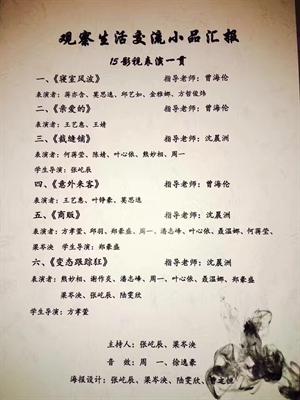 观察生活交流小品汇报
15影视表演一贯
一、《寝室风波》 指导老师：曾海伦
表演者：蒋亦含、莫思遥、邱艺如、金雅娜、方哲俊炜
二、《亲爱的》 指导老师：曾海伦
表演者：王艺惠、王婧
三、《裁缝铺》 指导老师：沈晨洲
表演者：何蒋莹、陈婧、叶心依、熊妙相、周一
学生导演：张屹辰
四、《意外来客》 指导老师：曾海伦
表演者：王艺惠、叶铮豪、莫思遥
五、《商贩》 指导老师：沈晨洲
表演者：方孝萱、邱羽、郑豪盛、周一、潘志峰、叶心依、聂温娜、何蒋莹、
梁岑泱 学生导演：郑豪盛
六、《变态跟踪狂》 指导老师：沈晨洲
表演者：熊妙相、谢作炎、潘志峰、周一、叶心依、聂温娜、郑豪盛
梁岑泱、张屹辰、陆雯欣
学生导演：方孝萱
主持人：张屹辰、梁岑泱
音 效：周 一、徐逸豪
海报设计：张屹辰、梁岑泱、陆雯欣、